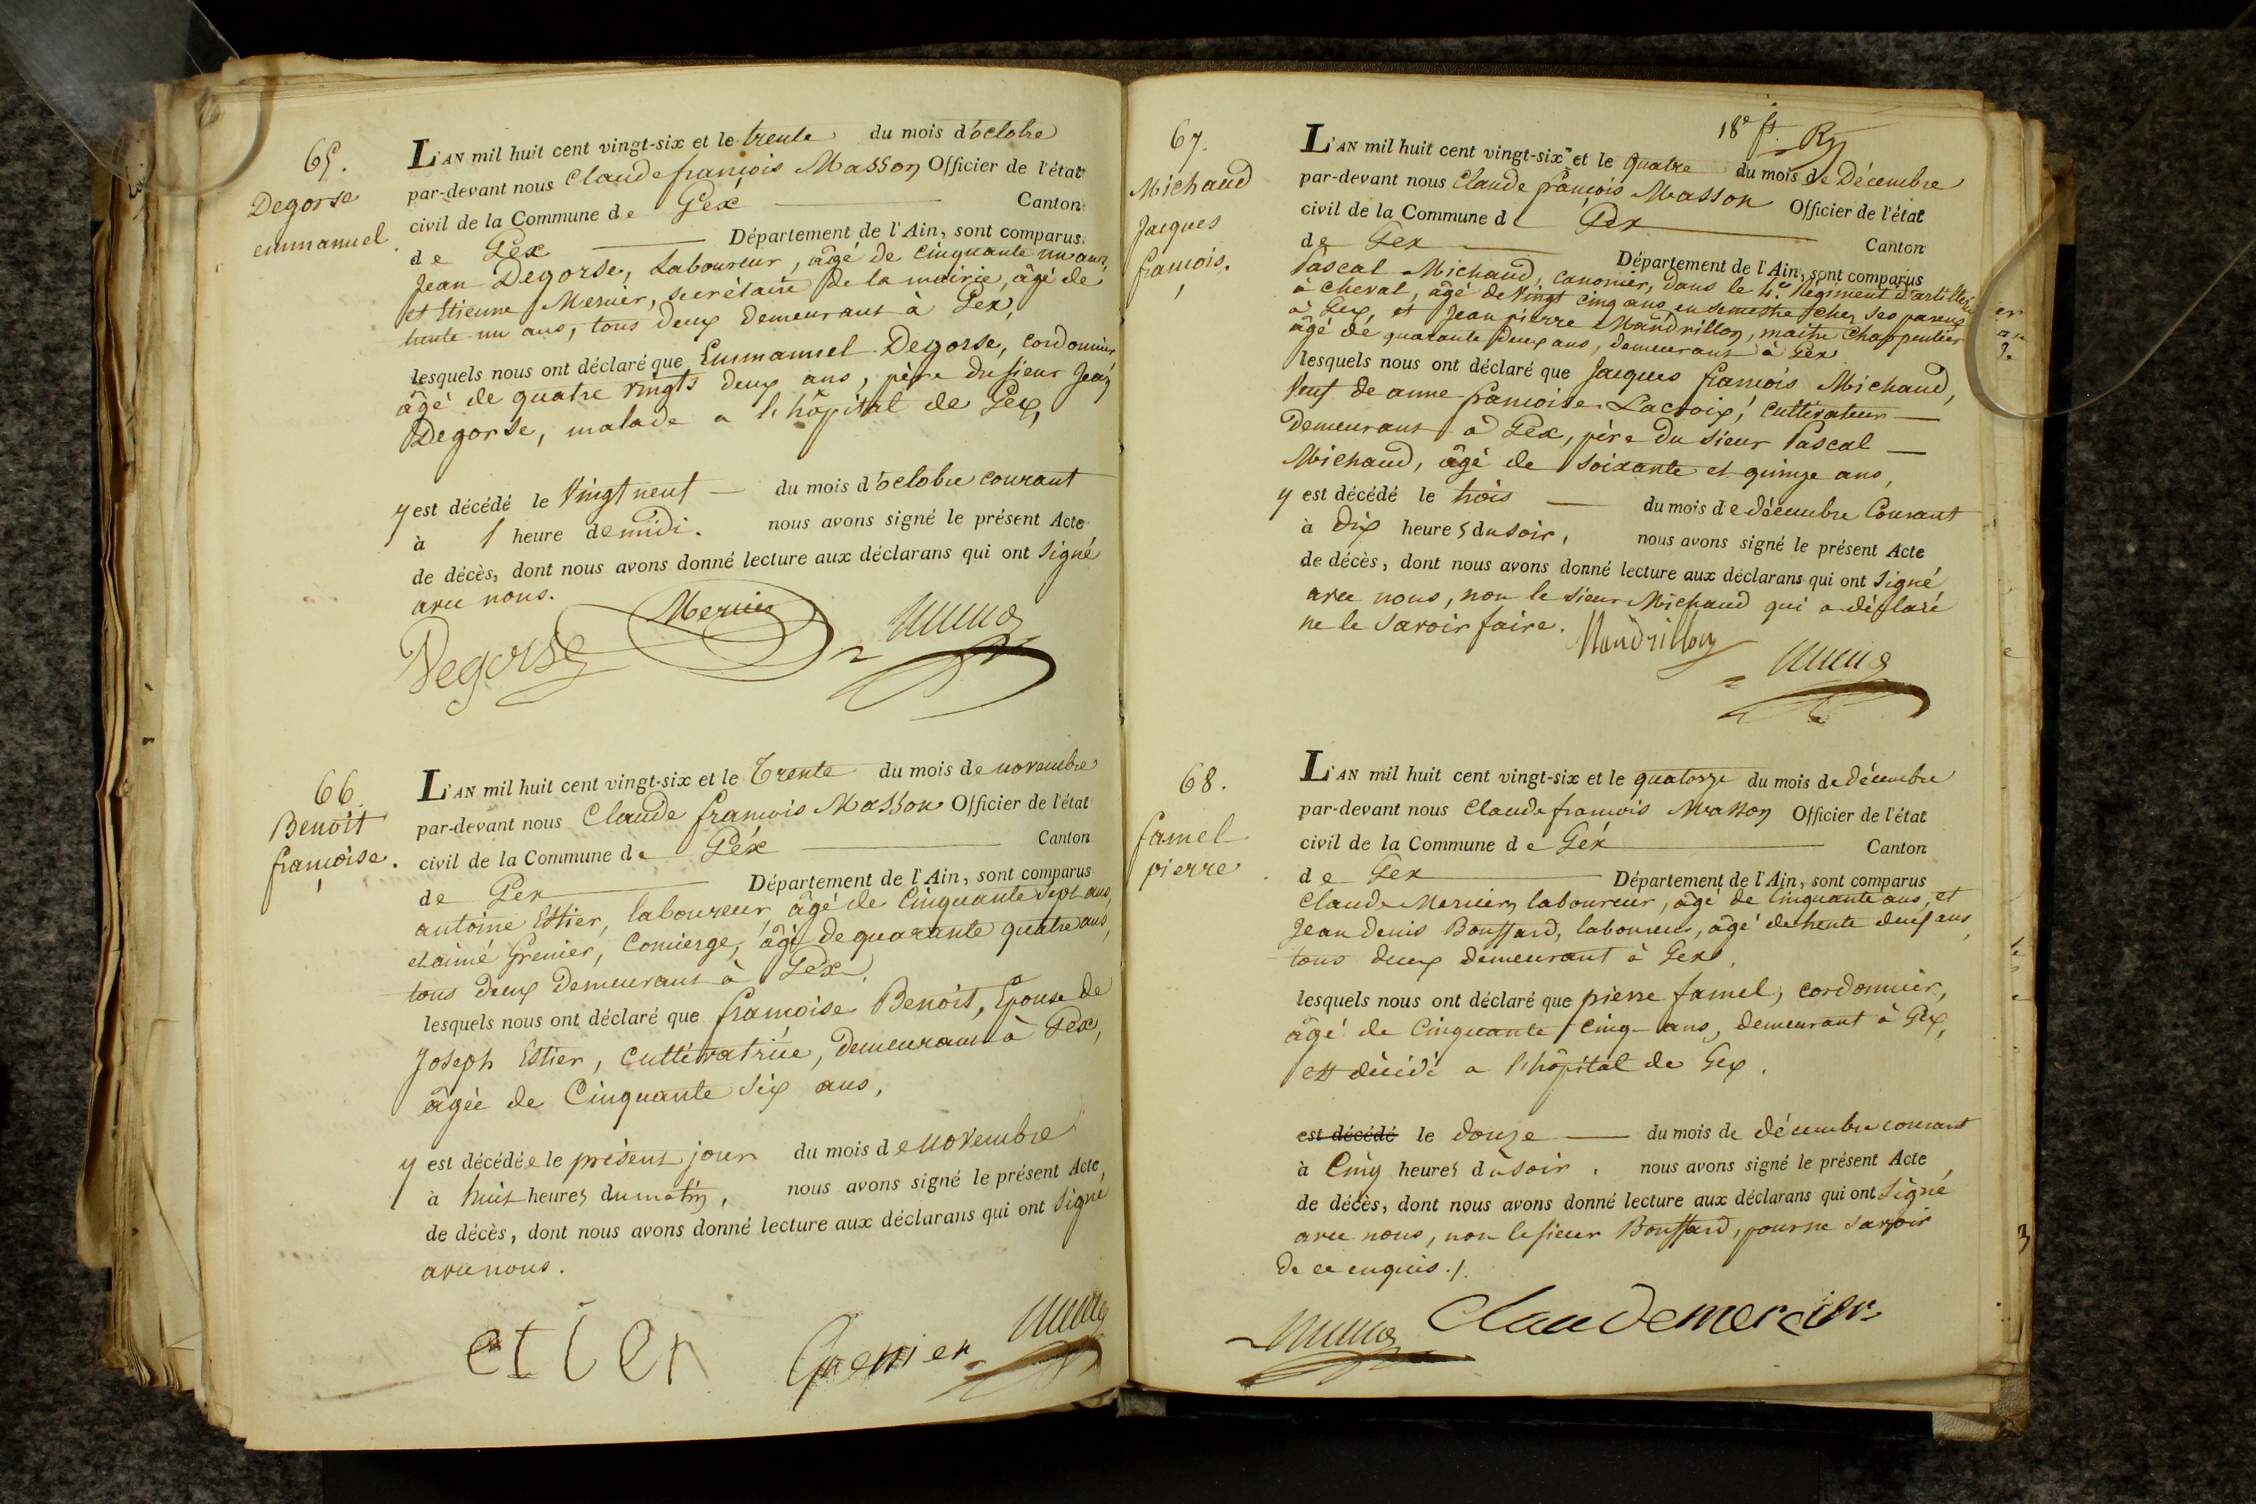 65.
Degorse
emmanuel.
L'AN mil huit cent vingt-six et le trente du mois d'octobre
par-devant nous Claude françois Masson Officier de l'état
civil de la Commune de Gex Canton
de Gex Département de l'Ain, sont comparus
Jean Degorse, Laboureur, âgé de cinquante un ans,
et Etienne Mercier, secrétaire de la mairie, âgé de
trente un ans, tous deux demeurant à Gex,
lesquels nous ont déclaré que Emmanuel Degorse, cordonnier
âgé de quatre vingts deux ans, père du sieur Jean
Degorse, malade a l'hôpital de Gex,
y est décédé le Vingt neuf du mois d'octobre courant
à 1 heure de midi. nous avons signé le présent Acte
de décès, dont nous avons donné lecture aux déclarans qui ont signé
avec nous.
Degorse Mercier
66.
Benoit
françoise.
L'AN mil huit cent vingt-six et le Trente du mois de novembre
par-devant nous Claude françois Masson Officier de l'état
civil de la Commune de Géx Canton
de Gex Département de l'Ain, sont comparus
antoine Estier, laboureur, âgé de Cinquante sept ans,
et aimé Grenier, Concierge, âgé de quarante quatre ans,
tous deux demeurant à Gex,
lesquels nous ont déclaré que françoise Benoit, Epouse de
Joseph Estier, cultivatrice, demeurant à Gex,
âgée de Cinquante six ans,
y est décédée le présent jour du mois de novembre
à huit heures du matin, nous avons signé le présent Acte,
de décès, dont nous avons donné lecture aux déclarans qui ont signé
avec nous.
etier Grenier
18e ft.
67.
Michaud
Jacques
françois.
L'AN mil huit cent vingt-six et le quatre du mois de Décembre
par-devant nous Claude françois Masson Officier de l'état
civil de la Commune d Gex Canton
de Gex Département de l'Ain, sont comparus
Pascal Michaud, canonier, dans le 4e Régiment d'artillerie
à cheval, âgé de vingt cinq ans, en semestre chez ses parens
à Gex, et Jean pierre Mandrillon, maitre Charpentier
âgé de quarante deux ans, demeurant à Gex
lesquels nous ont déclaré que Jacques françois Michaud,
Veuf de anne françoise Lacroix, cultivateur
Demeurant à Gex, père du sieur Pascal
Michaud, âgé de soixante et quinze ans,
y est décédé le trois du mois de décembre Courant
à dix heures du soir, nous avons signé le présent Acte
de décès, dont nous avons donné lecture aux déclarans qui ont signé
avec nous, non le sieur Michaud qui a déclaré
ne le savoir faire.
Mandrillon
68.
famel
pierre
L'AN mil huit cent vingt-six et le quatorze du mois de décembre
par-devant nous Claude françois Masson Officier de l'état
civil de la Commune de Géx Canton
de Gex Département de l'Ain, sont comparus
Claude Mercier, laboureur, âgé de Cinquante ans, et
Jean denis Bouffard, laboureur, âgé de trente deux ans,
tous deux demeurant à Gex,
lesquels nous ont déclaré que pierre famel, cordonnier,
âgé de Cinquante cinq ans, demeurant à Gex,
est décédé a l'hôpital de Gex.
est décédé le douze du mois de décembre courant
à Cinq heures du soir. nous avons signé le présent Acte
de décès, dont nous avons donné lecture aux déclarans qui ont signé
avec nous, non le sieur Bouffard, pour ne savoir
de ce enquis./.
Claude mercier